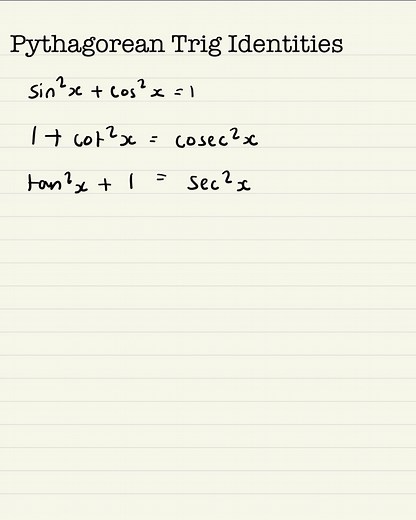 Pythagorean Trig Identities
sin²x + cos²x = 1
1 + cot²x = cosec²x
tan²x + 1 = sec²x